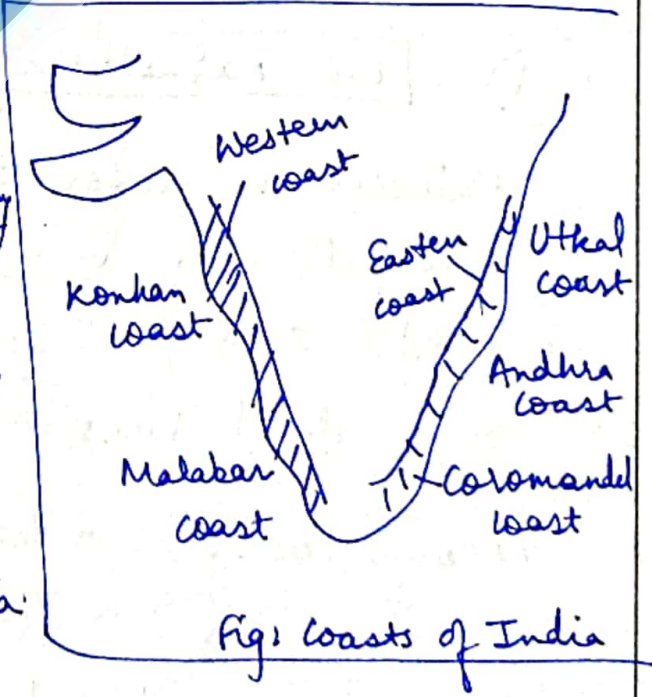 Western
coast
Easten
coast
Utkal
coast
Konkan
coast
Andhra
coast
Malabar
coast
Coromandel
coast
Fig: Coasts of India